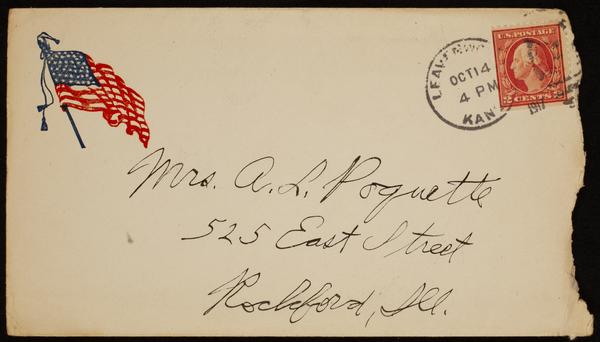 U.S. POSTAGE
2 CENTS 2
OCT 14
4 PM
KAN
1917
Mrs. A. L. Poquette
525 East Street
Rockford, Ill.